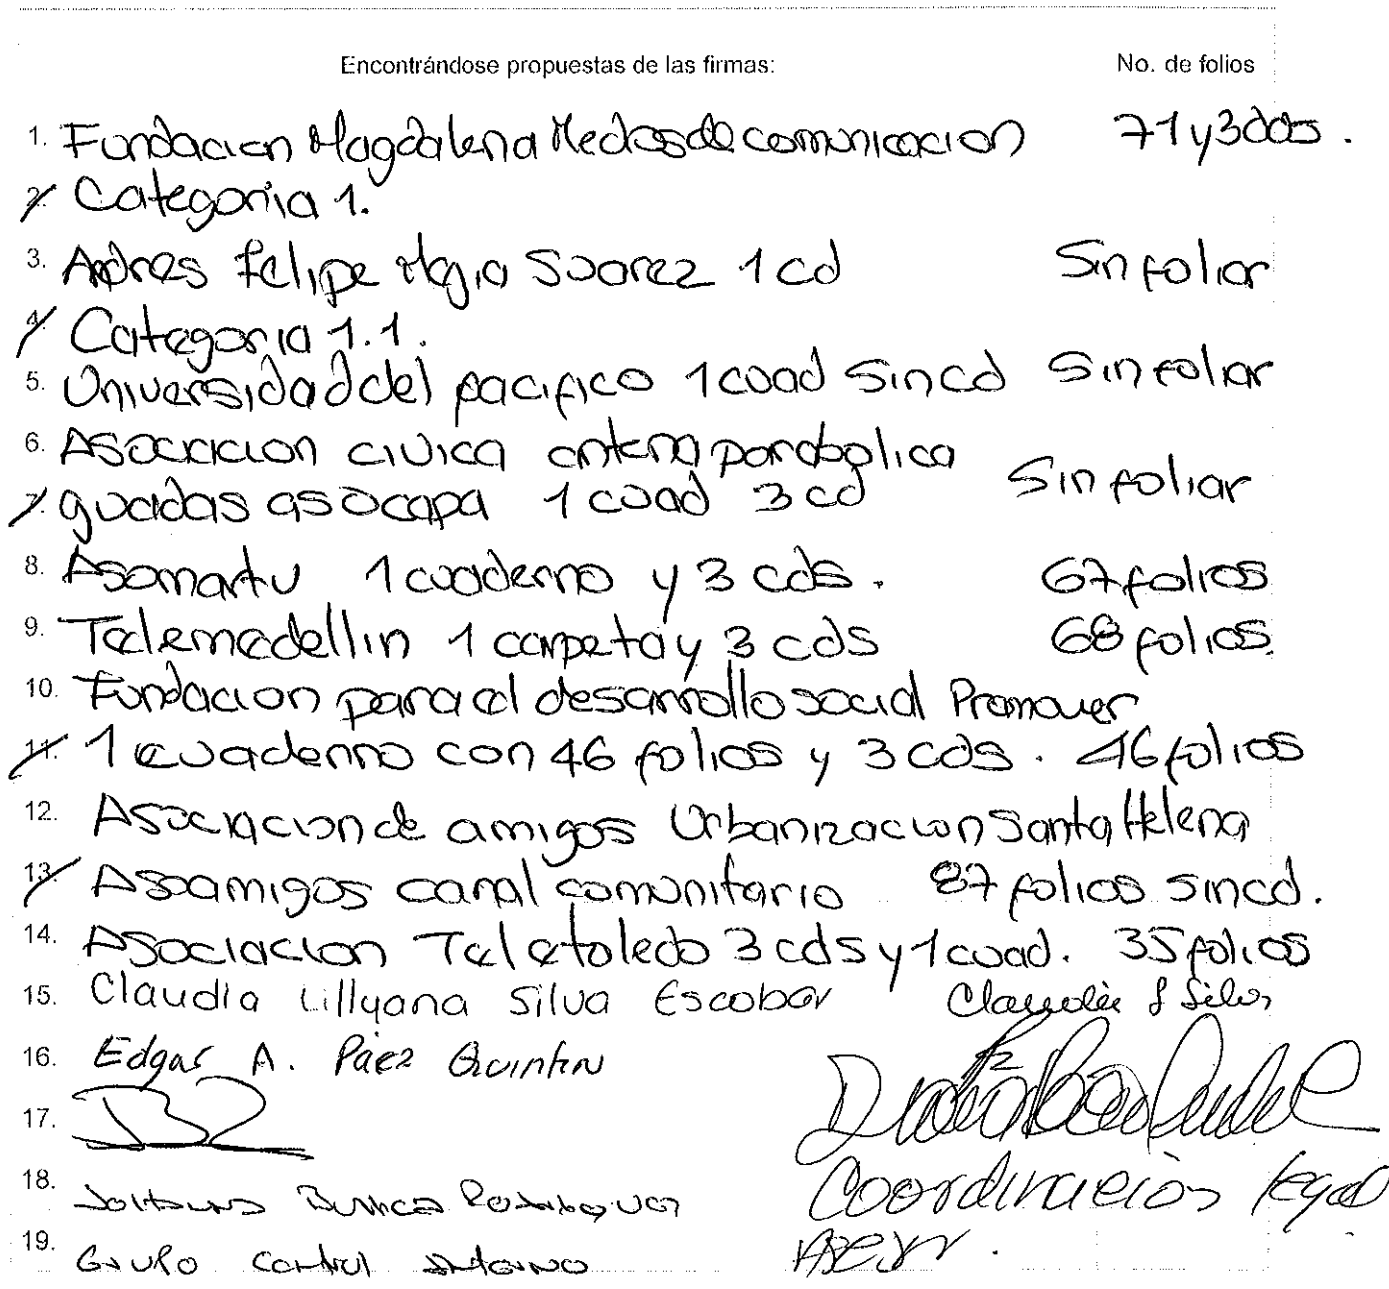 Encontrándose propuestas de las firmas: No. de folios
1. Fundacion Magdalena Medios de comunicacion 71 y 3 cds.
2. Categoria 1.
3. Andres Felipe Mejia Suarez 1 cd Sin foliar
4. Categoria 1.1.
5. Universidad del pacifico 1 cuad sin cd Sin foliar
6. Asociacion civica antena parabolica
7. guadas asocapa 1 cuad 3 cd Sin foliar
8. Asomartu 1 cuaderno y 3 cds. 67 folios
9. Telemedellin 1 carpeta y 3 cds 68 folios
10. Fundacion para el desarrollo social Promover
11. 1 cuaderno con 46 folios y 3 cds. 46 folios
12. Asociacion de amigos Urbanizacion Santa Helena
13. Asoamigos canal comunitario 87 folios sin cd.
14. Asociacion Teletoledo 3 cds y 1 cuad. 35 folios
15. Claudia Lillyana Silva Escobar Claudia L Silva
16. Edgar A. Páez Quintin
17.
18. Rodriguez Coordinación legal
19. Grupo Control Interno